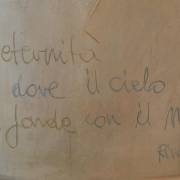 eternità
dove il cielo
fonde con il